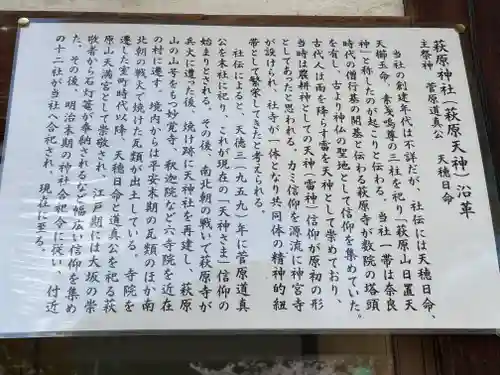 萩原神社(萩原天神)沿革
主祭神 菅原道真公 天穂日命
当社の創建年代は不詳だが、社伝には天穂日命、
天櫛玉命、素戔嗚尊の三社を祀り「萩原山日置天
神」と称したのが起こりと伝わる。当社一帯は奈良
時代の僧行基の開基と伝わる萩原寺が数院の塔頭
を有し、古より神仏の聖地として信仰を集めていた。
古代人は雨を降らす雷を天神として崇めており、
当時は農耕神としての天神(雷神)信仰が原初の形
としてあったと思われる。カミ信仰を源流に神宮寺
が設けられ、社寺が一体となり共同体の精神的紐
帯として繁栄してきたと考えられる。
社伝によると、天徳三(九五九)年に菅原道真
公を本社に祀り、これが現在の「天神さま」信仰の
始まりとされる。その後、南北朝の戦いで萩原寺が
兵火に遭った後、焼け跡に天神社を再建し、萩原
山の山号をもつ妙覚寺、釈迦院など六寺院を近在
の村に遷す。境内からは平安末期の瓦類のほか南
北朝の戦火で焼けた瓦類が出土している。寺院を
遷した室町時代以降、天穂日命と道真公を祀る萩
原山天満宮として崇敬され、江戸期には大坂の崇
敬者から石灯篭が奉納されるなど幅広い信仰を集め
た。その後、明治末期の神社合祀令に従い、付近
の十二社が当社へ合祀され、現在に至る。